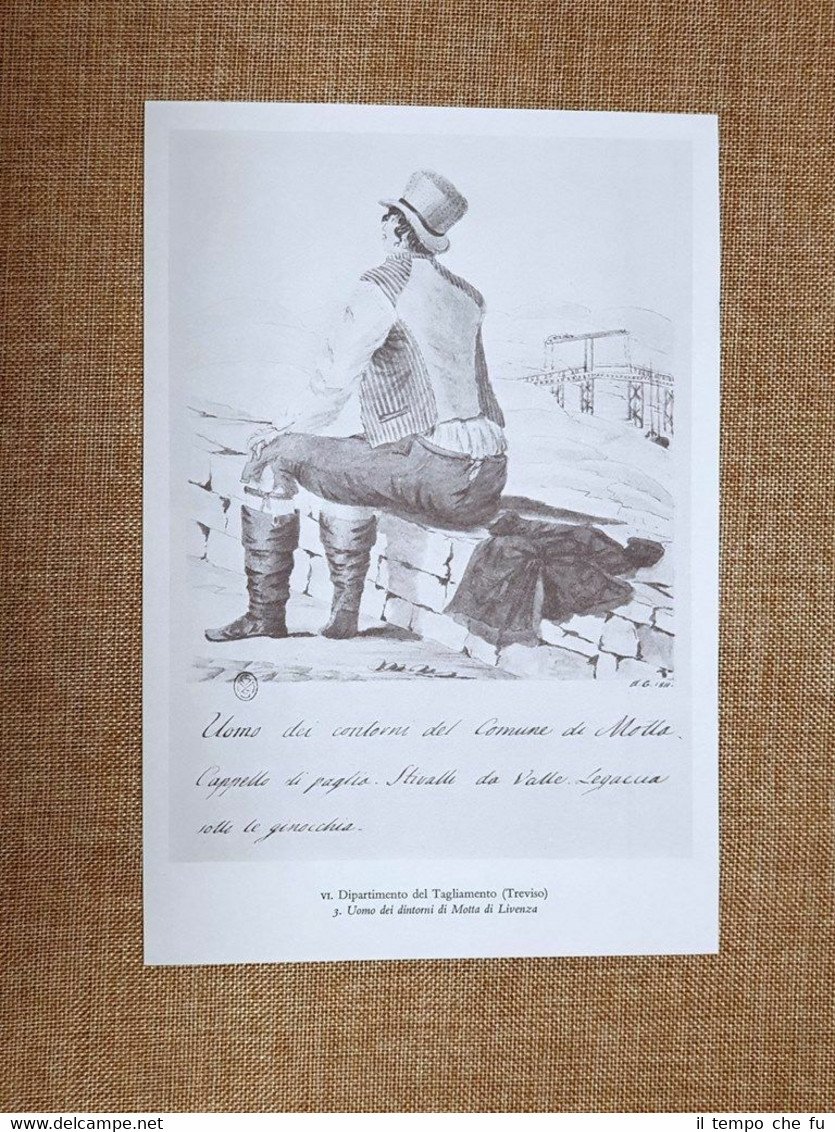 A. C. 1811.
Uomo dei contorni del Comune di Motta.
Cappello di paglia. Stivalli da Valle. Legaccia
sotto le ginocchia.
VI. Dipartimento del Tagliamento (Treviso)
3. Uomo dei dintorni di Motta di Livenza
www.delcampe.net
il tempo che fu